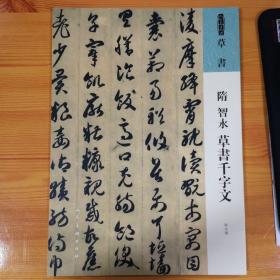 草書
隋 智永 草書千字文
凌摩絳霄耽讀翫市寓目
囊箱易輶攸畏屬耳垣墻
具膳飡飯適口充腸飽飫
烹宰飢厭糟糠親戚故舊
老少異糧妾御績紡侍巾